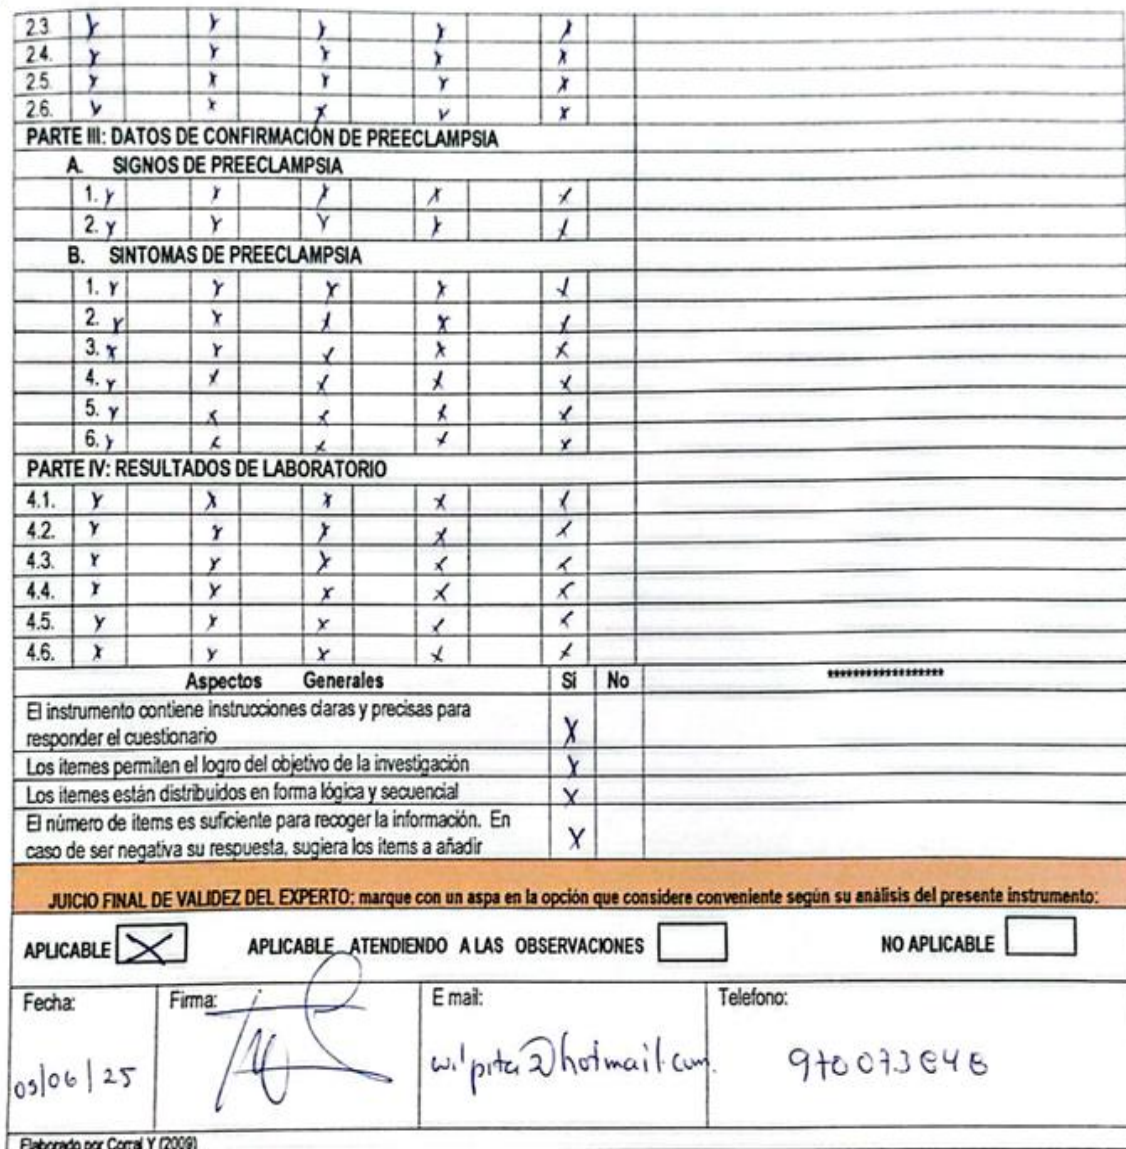 2.3 X X X X X
2.4. X X X X X
2.5. X X X X X
2.6. X X X X X
PARTE III: DATOS DE CONFIRMACIÓN DE PREECLAMPSIA
A. SIGNOS DE PREECLAMPSIA
1. X X X X X
2. X X X X X
B. SINTOMAS DE PREECLAMPSIA
1. X X X X X
2. X X X X X
3. X X X X X
4. X X X X X
5. X X X X X
6. X X X X X
PARTE IV: RESULTADOS DE LABORATORIO
4.1. X X X X X
4.2. X X X X X
4.3. X X X X X
4.4. X X X X X
4.5. X X X X X
4.6. X X X X X
Aspectos Generales Si No ******************
El instrumento contiene instrucciones claras y precisas para
responder el cuestionario X
Los itemes permiten el logro del objetivo de la investigación X
Los itemes están distribuidos en forma lógica y secuencial X
El número de items es suficiente para recoger la información. En
caso de ser negativa su respuesta, sugiera los items a añadir X
JUICIO FINAL DE VALIDEZ DEL EXPERTO; marque con un aspa en la opción que considere conveniente según su análisis del presente instrumento:
APLICABLE X APLICABLE ATENDIENDO A LAS OBSERVACIONES NO APLICABLE
Fecha: Firma: E mail: Telefono:
/06/25 @hotmail.com
Elaborado por Corral Y (2009)